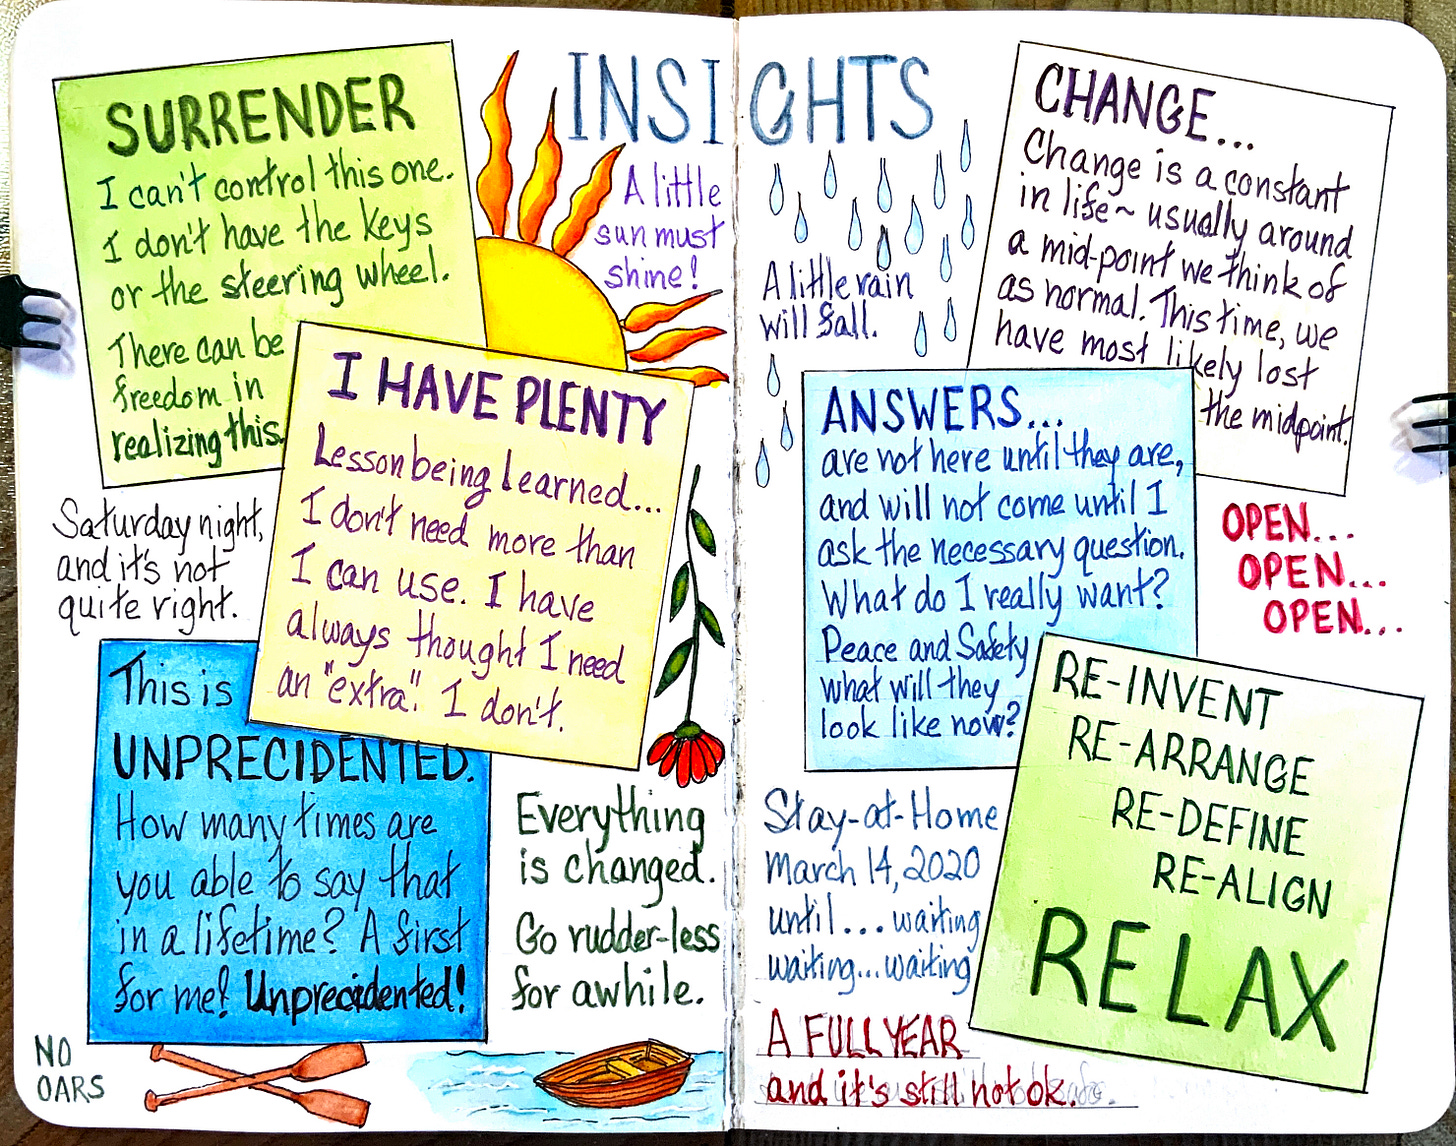 INSIGHTS
SURRENDER
I can't control this one.
I don't have the keys
or the steering wheel.
There can be
freedom in
realizing this.
A little
sun must
shine!
I HAVE PLENTY
Lesson being learned...
I don't need more than
I can use. I have
always thought I need
an "extra". I don't.
Saturday night,
and it's not
quite right.
This is
UNPRECIDENTED.
How many times are
you able to say that
in a lifetime? A first
for me! Unprecidented!
Everything
is changed.
Go rudder-less
for awhile.
NO
OARS
A little rain
will fall.
CHANGE...
Change is a constant
in life~ usually around
a mid-point we think of
as normal. This time, we
have most likely lost
the midpoint.
ANSWERS...
are not here until they are,
and will not come until I
ask the necessary question.
What do I really want?
Peace and Safety
what will they
look like now?
OPEN...
OPEN...
OPEN...
RE-INVENT
RE-ARRANGE
RE-DEFINE
RE-ALIGN
RELAX
Stay-at-Home
March 14, 2020
until... waiting
waiting... waiting
A FULL YEAR
and it's still not ok.